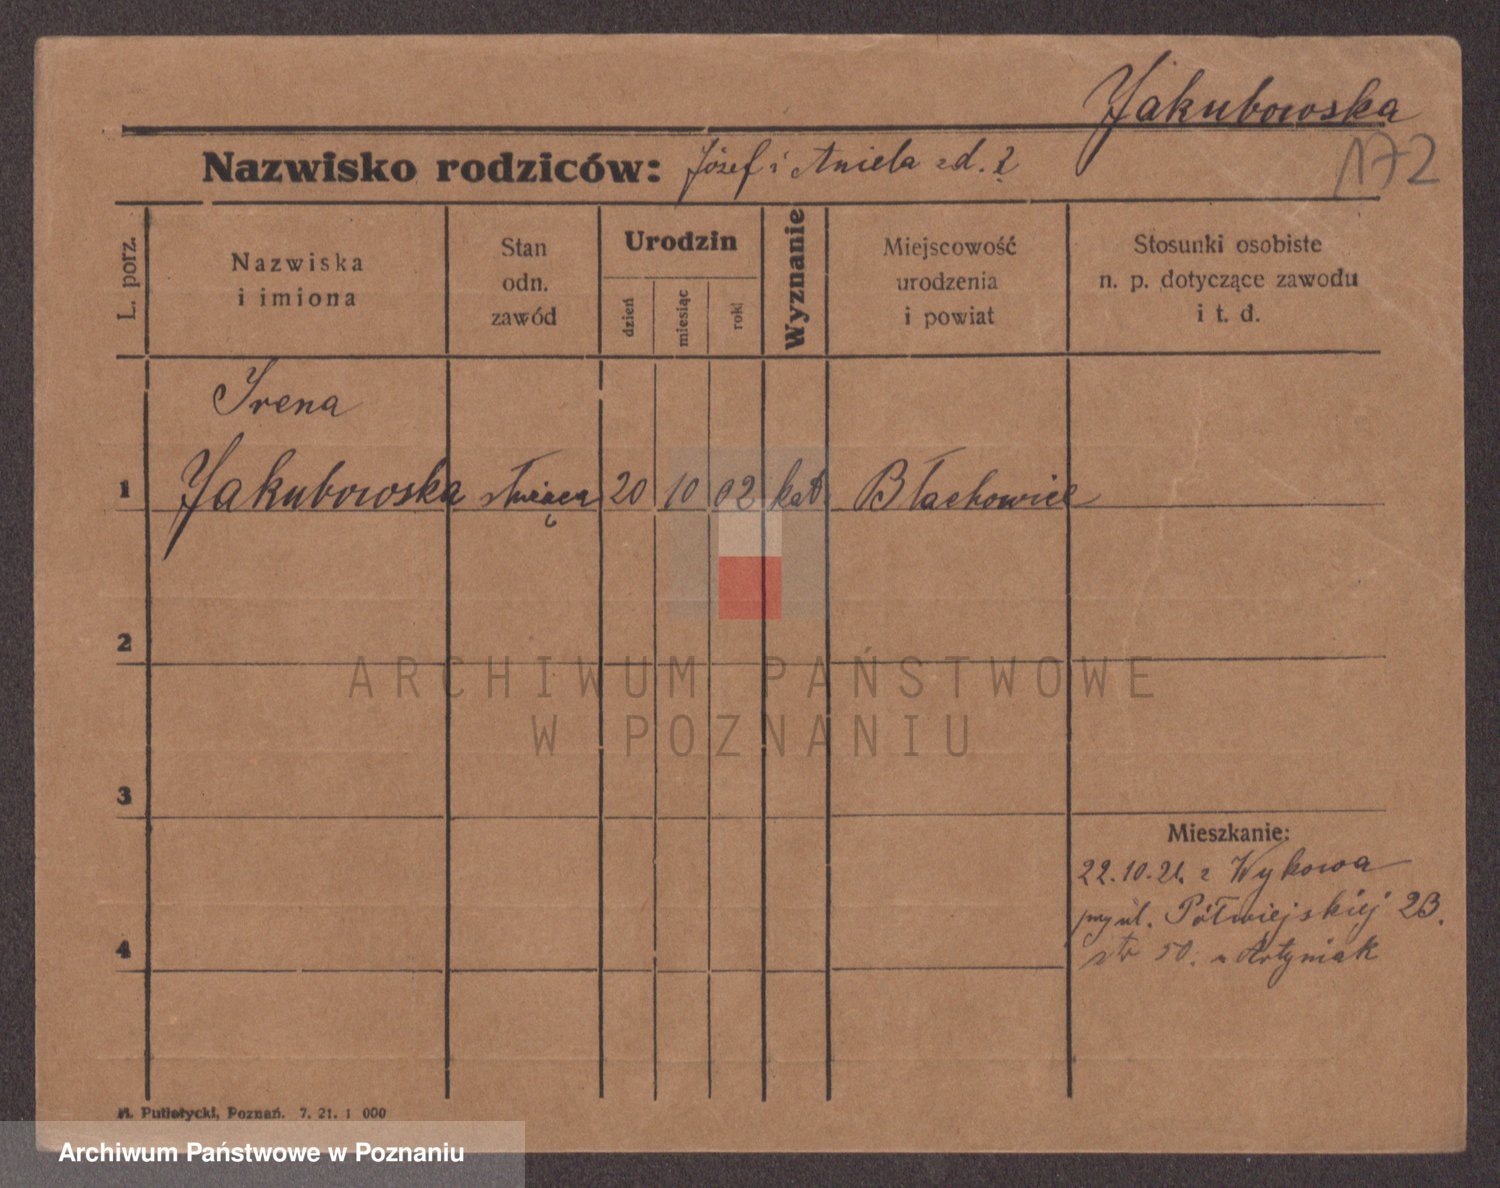 Jakubowska
172
Nazwisko rodziców: Józef i Aniela zd. ?
L. porz.
Nazwiska
i imiona
Stan
odn.
zawód
Urodzin
dzień
miesiąc
rok
Wyznanie
Miejscowość
urodzenia
i powiat
Stosunki osobiste
n. p. dotyczące zawodu
i t. d.
Irena
1 Jakubowska służąca 20 10 02 kat Błachowice
2
ARCHIWUM PAŃSTWOWE
W POZNANIU
3
Mieszkanie:
22.10.21. z Wykowa
przy ul. Półwiejskiej 23.
str 50. u
4
Putiatycki, Poznań. 7. 21. 1 000
Archiwum Państwowe w Poznaniu